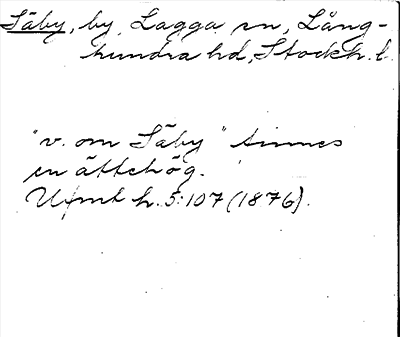 Säby, by, Lagga sn, Lång-
hundra hd, Stockh. l.
"v. om Säby" finnes
en ättehög.
Ufmt h. 5:107 (1876).